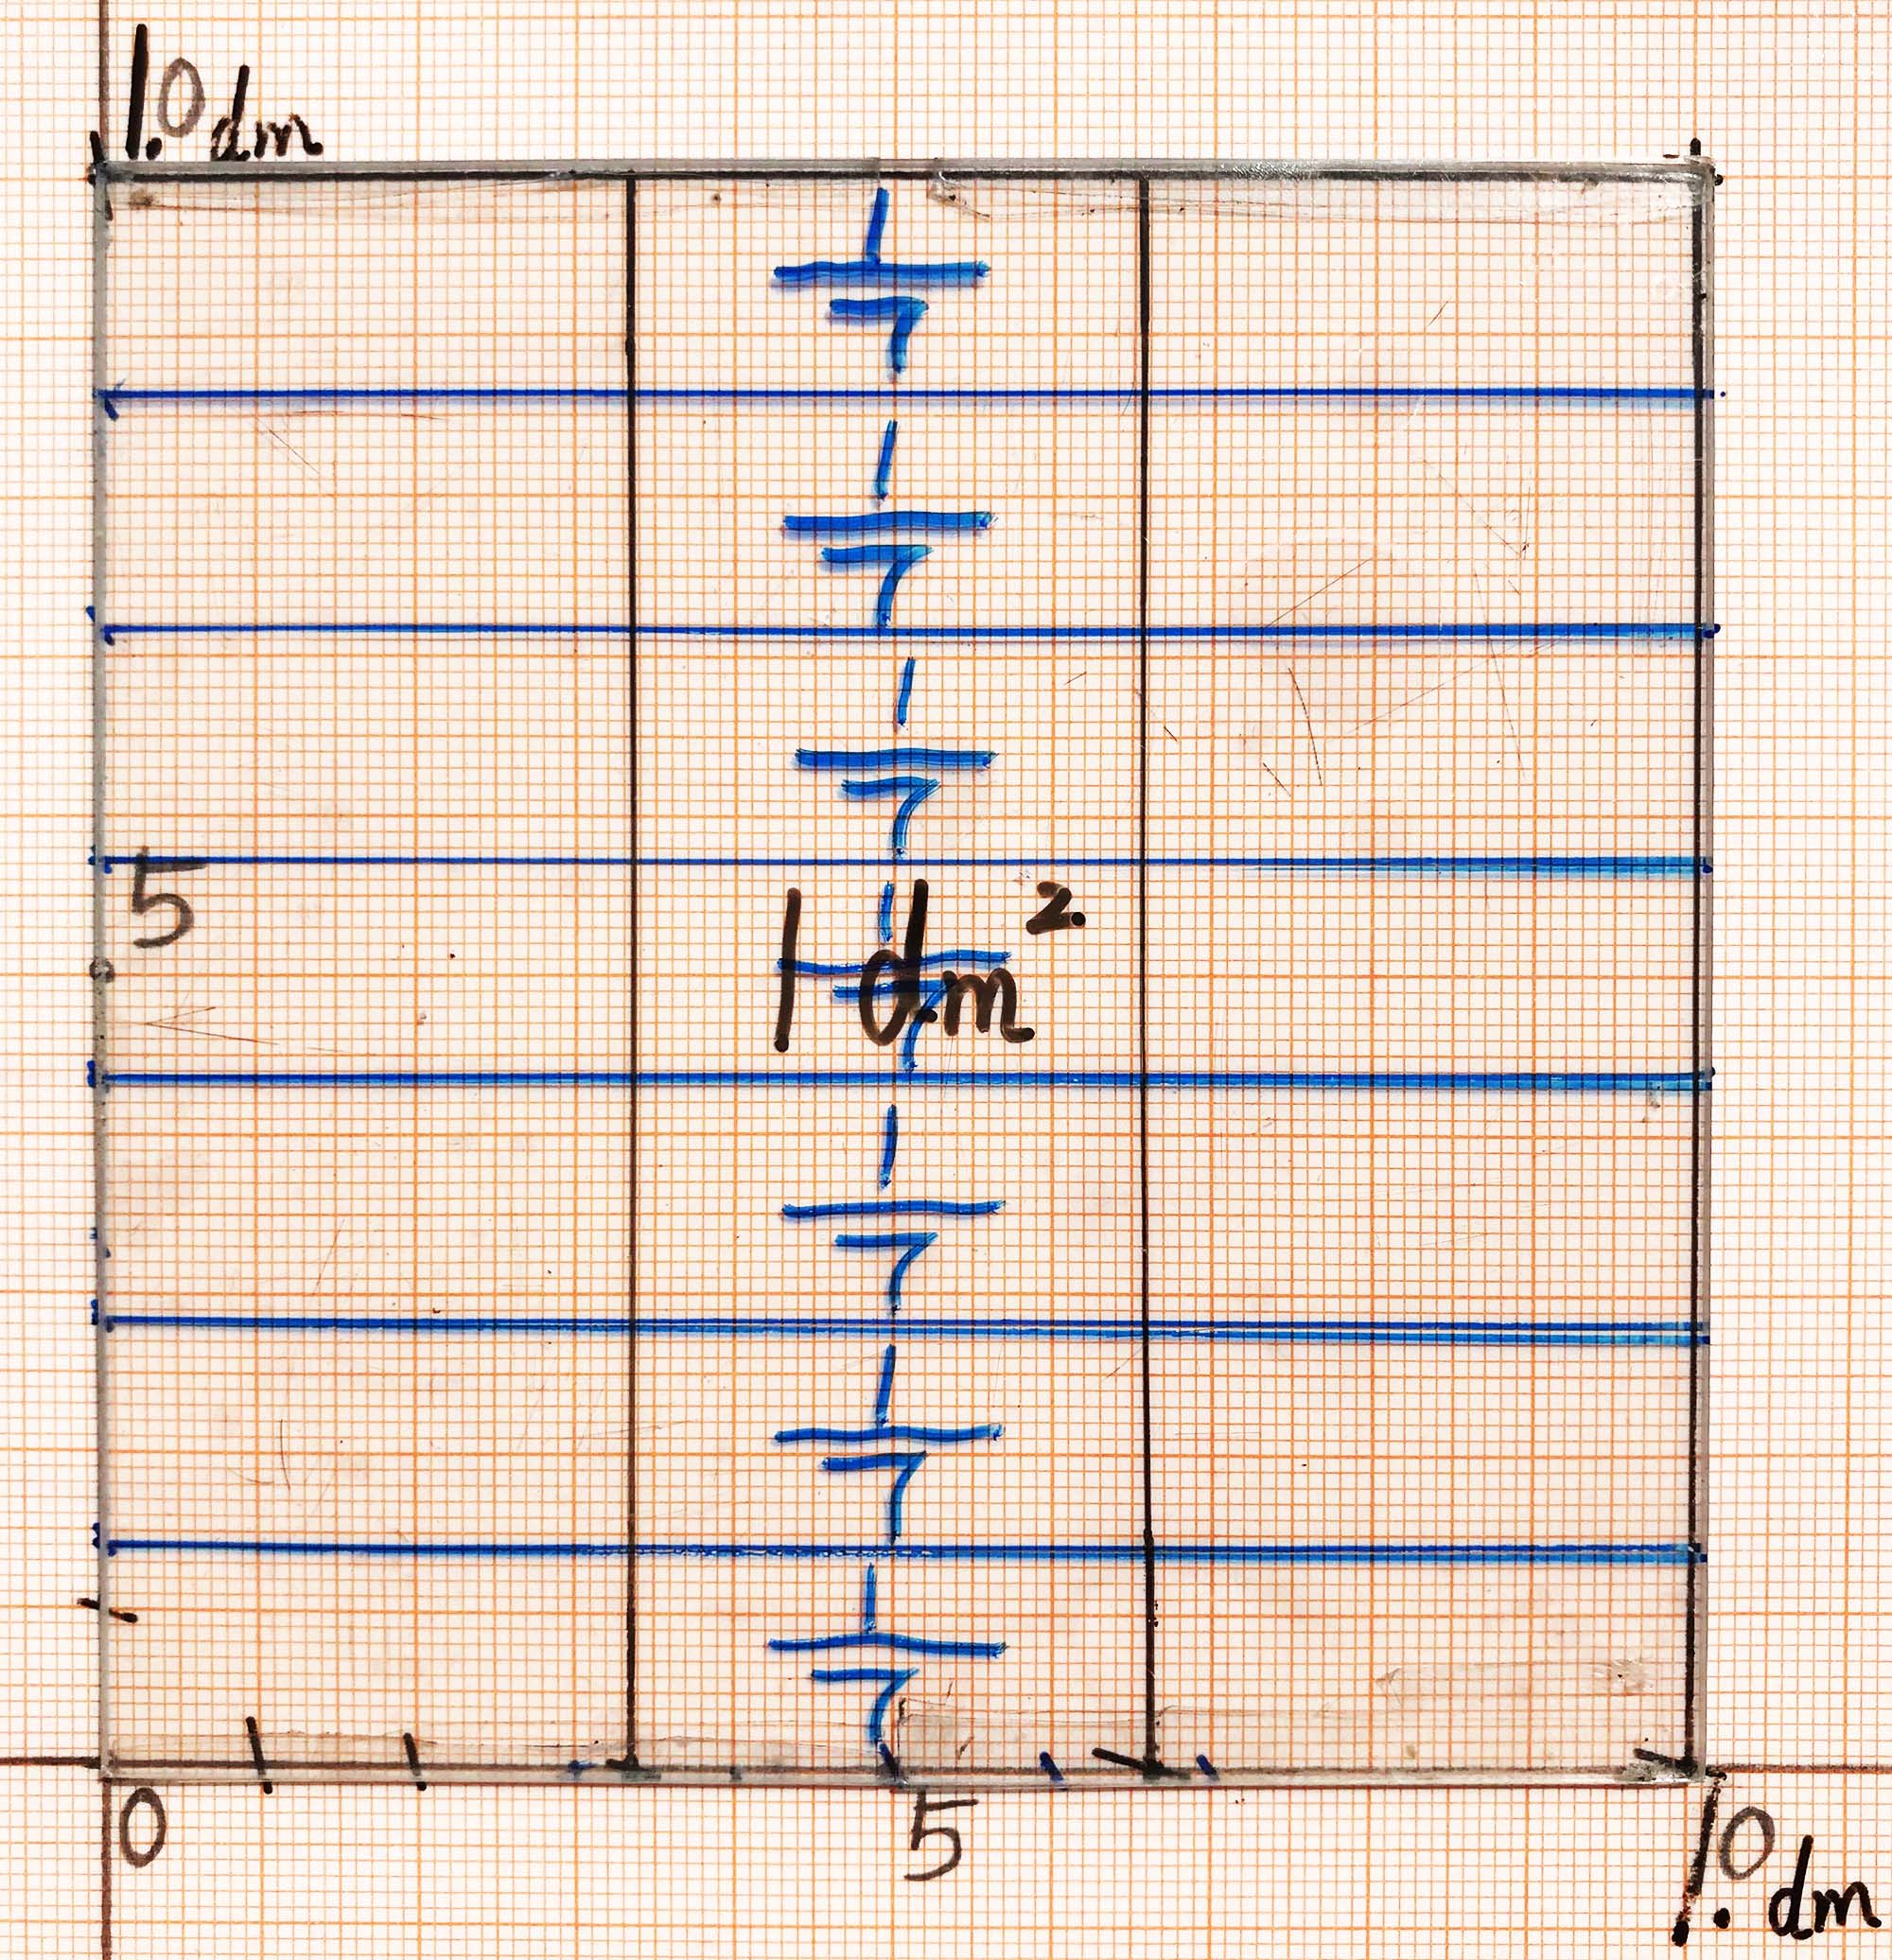 1.0 dm
1/7
1/7
1/7
5
1/7
1 dm²
1/7
1/7
1/7
0
5
1.0 dm